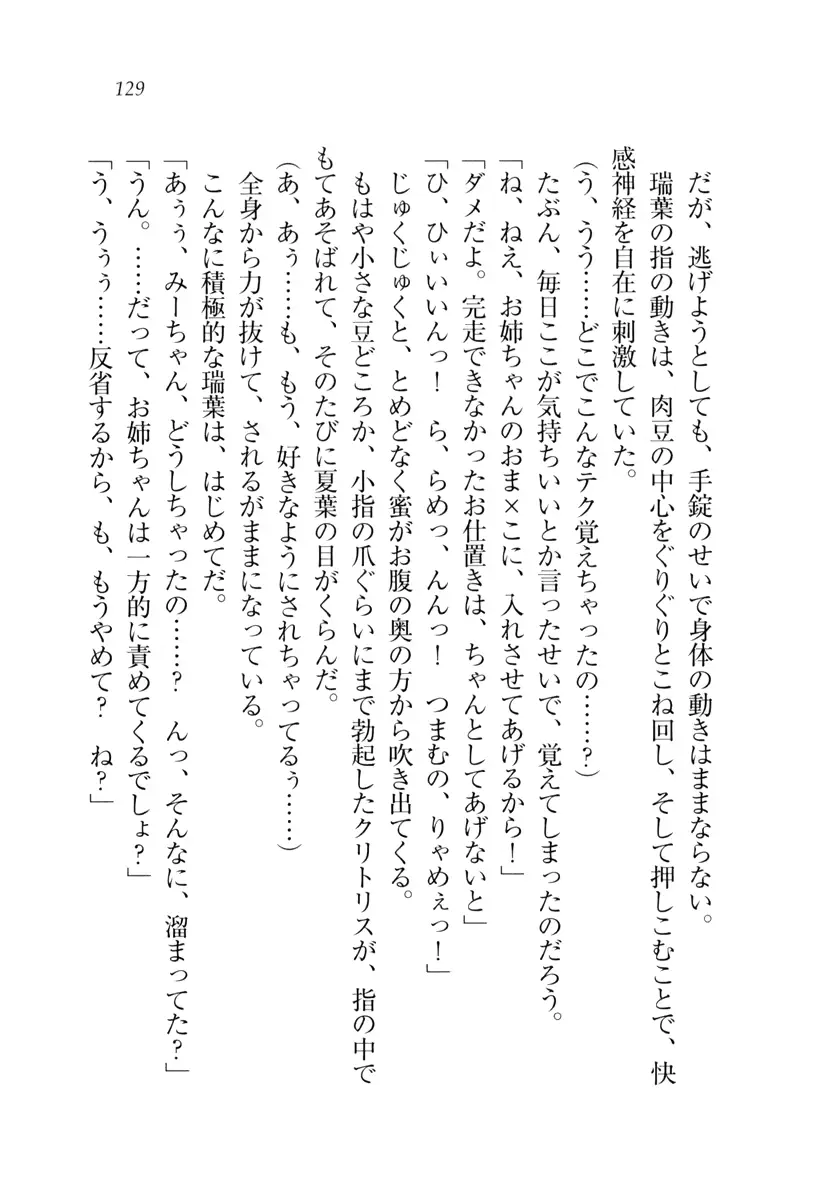 129
だが、逃げようとしても、手錠のせいで身体の動きはままならない。
瑞葉の指の動きは、肉豆の中心をぐりぐりとこね回し、そして押しこむことで、快
感神経を自在に刺激していた。
（う、うう……どこでこんなテク覚えちゃったの……？）
たぶん、毎日ここが気持ちいいとか言ったせいで、覚えてしまったのだろう。
「ね、ねえ、お姉ちゃんのおま×こに、入れさせてあげるから！」
「ダメだよ。完走できなかったお仕置きは、ちゃんとしてあげないと」
「ひ、ひぃいいんっ！　ら、らめっ、んんっ！　つまむの、りゃめぇっ！」
じゅくじゅくと、とめどなく蜜がお腹の奥の方から吹き出てくる。
もはや小さな豆どころか、小指の爪ぐらいにまで勃起したクリトリスが、指の中で
もてあそばれて、そのたびに夏葉の目がくらんだ。
（あ、あぅ……も、もう、好きなようにされちゃってるぅ……）
全身から力が抜けて、されるがままになっている。
こんなに積極的な瑞葉は、はじめてだ。
「あぅぅ、みーちゃん、どうしちゃったの……？　んっ、そんなに、溜まってた？」
「うん。……だって、お姉ちゃんは一方的に責めてくるでしょ？」
「う、うぅぅ……反省するから、も、もうやめて？　ね？」